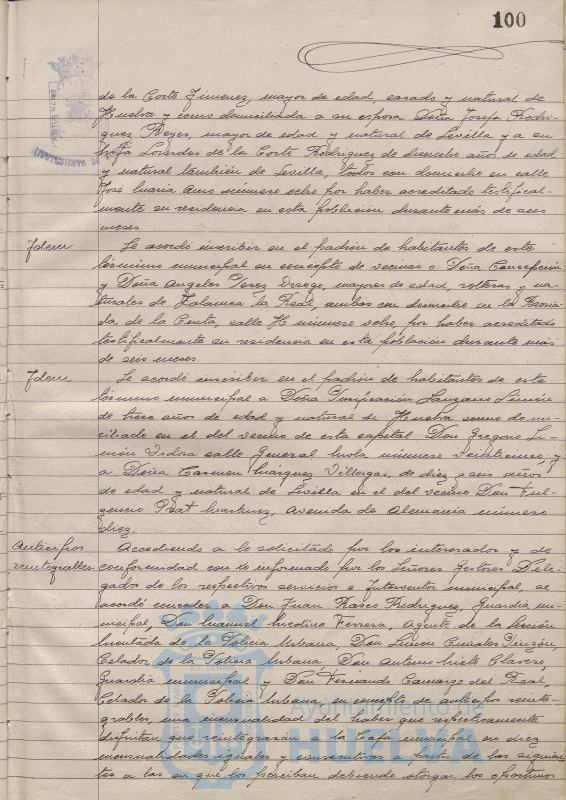 100
de la Corte Jimenez, mayor de edad, casado y natural de
Huelva y como domiciliada a su esposa Doña Josefa Rodri-
guez Reyes, mayor de edad y natural de Sevilla y a su
hija Lourdes de la Corte Rodriguez de dieciocho años de edad
y natural también de Sevilla, todos con domicilio en calle
José Maria Amo número ocho por haber acreditado testifical-
mente su residencia en esta población durante más de seis
meses.
Idem Se acordó inscribir en el padrón de habitantes de este
término municipal en concepto de vecinas a Doña Concepción
y Doña Angeles Perez Orrego, mayores de edad, solteras y na-
turales de Zalamea la Real, ambas con domicilio en la Barria-
da de la Cinta, calle H número ocho, por haber acreditado
testificalmente su residencia en esta población durante más
de seis meses.
Idem Se acordó inscribir en el padrón de habitantes de este
término municipal a Doña Purificación Lazcano Limón
de trece años de edad y natural de Huelva como domi-
ciliado en el del vecino de esta capital Don Gregorio Li-
món calle General Mola número veinticinco, y
a Doña Carmen Marquez Villegas, de diez y seis años
de edad y natural de Sevilla en el del vecino Don Ful-
gencio Prat Martinez, Avenida de Alemania número
diez.
Anticipos Accediendo a lo solicitado por los interesados y de
reintegrables. conformidad con lo informado por los Señores Gestores Dele-
gados de los respectivos servicios e Interventor municipal, se
acordó conceder a Don Juan Rasco Rodriguez, Guardia mu-
nicipal, Don Manuel Medina Ferrera, Agente de la Sección
Montada de la Policia Urbana, Don Simon Pinzón,
Celador de la Policia Urbana, Don Antonio Nieto Clavero,
Guardia municipal y Don Fernando Camargo del Real,
Celador de la Policia Urbana en concepto de anticipo reinte-
grables, una mensualidad del haber que respectivamente
disfrutan que reintegrarán a la Caja municipal en diez
mensualidades iguales y consecutivas a partir de las siguien-
tes a las en que los perciban debiendo otorgar los oportunos
Ayuntamiento de
HUELVA